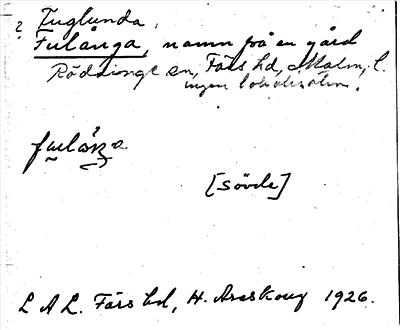 ? Fuglunda.
Fulånga, namn på en gård
Röddinge sn, Färs hd, Malm. l.
ingen lokalisation.
fuulåŋa
[Sövde]
L A L. Färs hd, H. Areskoug 1926.